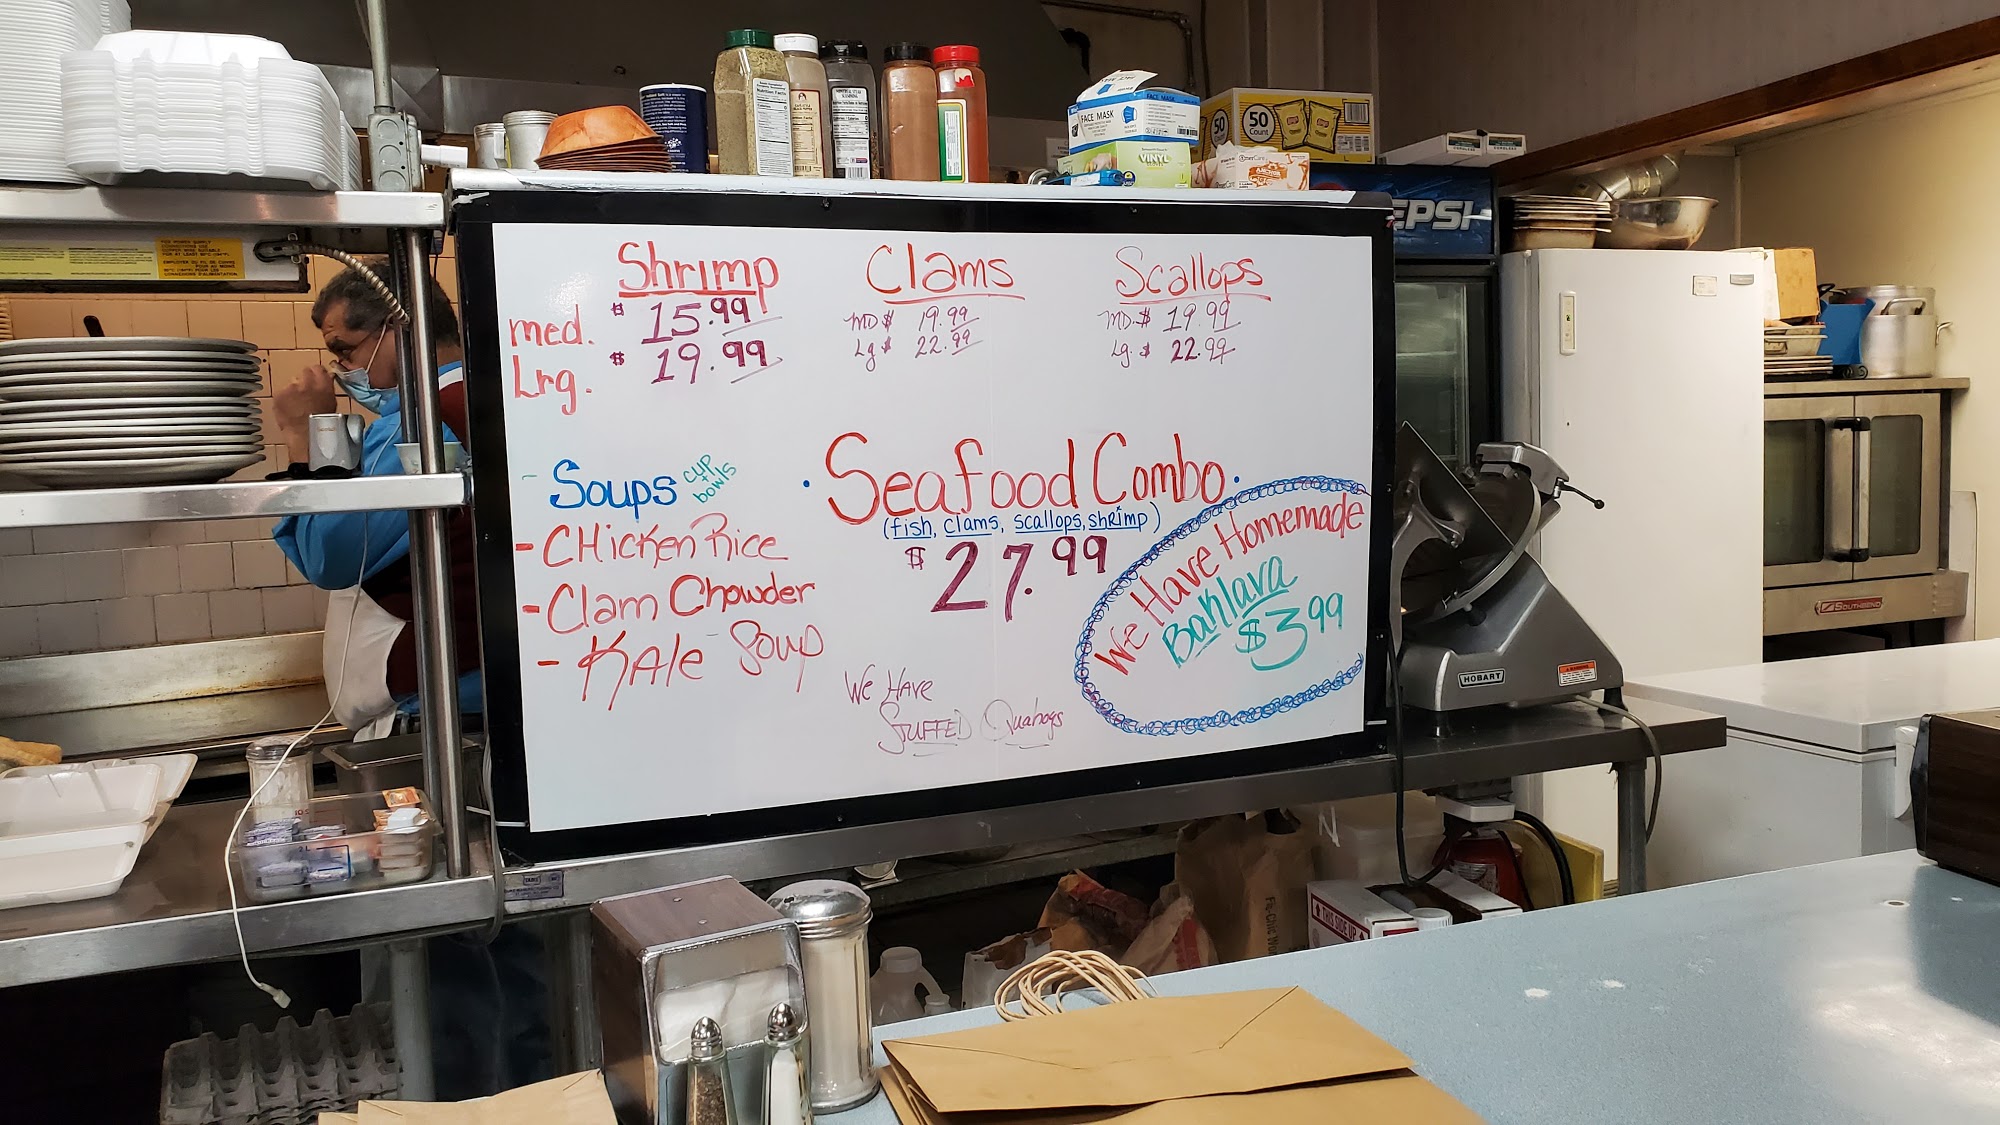 Shrimp
med. $ 15.99
Lrg. $ 19.99
Clams
MD $ 19.99
Lg $ 22.99
Scallops
MD. $ 19.99
Lg. $ 22.99
- Soups cup + bowls
- CHicken Rice
- Clam Chowder
- KAle Soup
• Seafood Combo •
(fish, clams, scallops, shrimp)
$ 27.99
We Have
STUFFED Quahogs
We Have Homemade
Baklava
$3.99
FACE MASK
FACE MASK
VINYL
50
50 Count
EPSI
HOBART
SOUTHBEND
THIS SIDE UP
Nutrition Facts